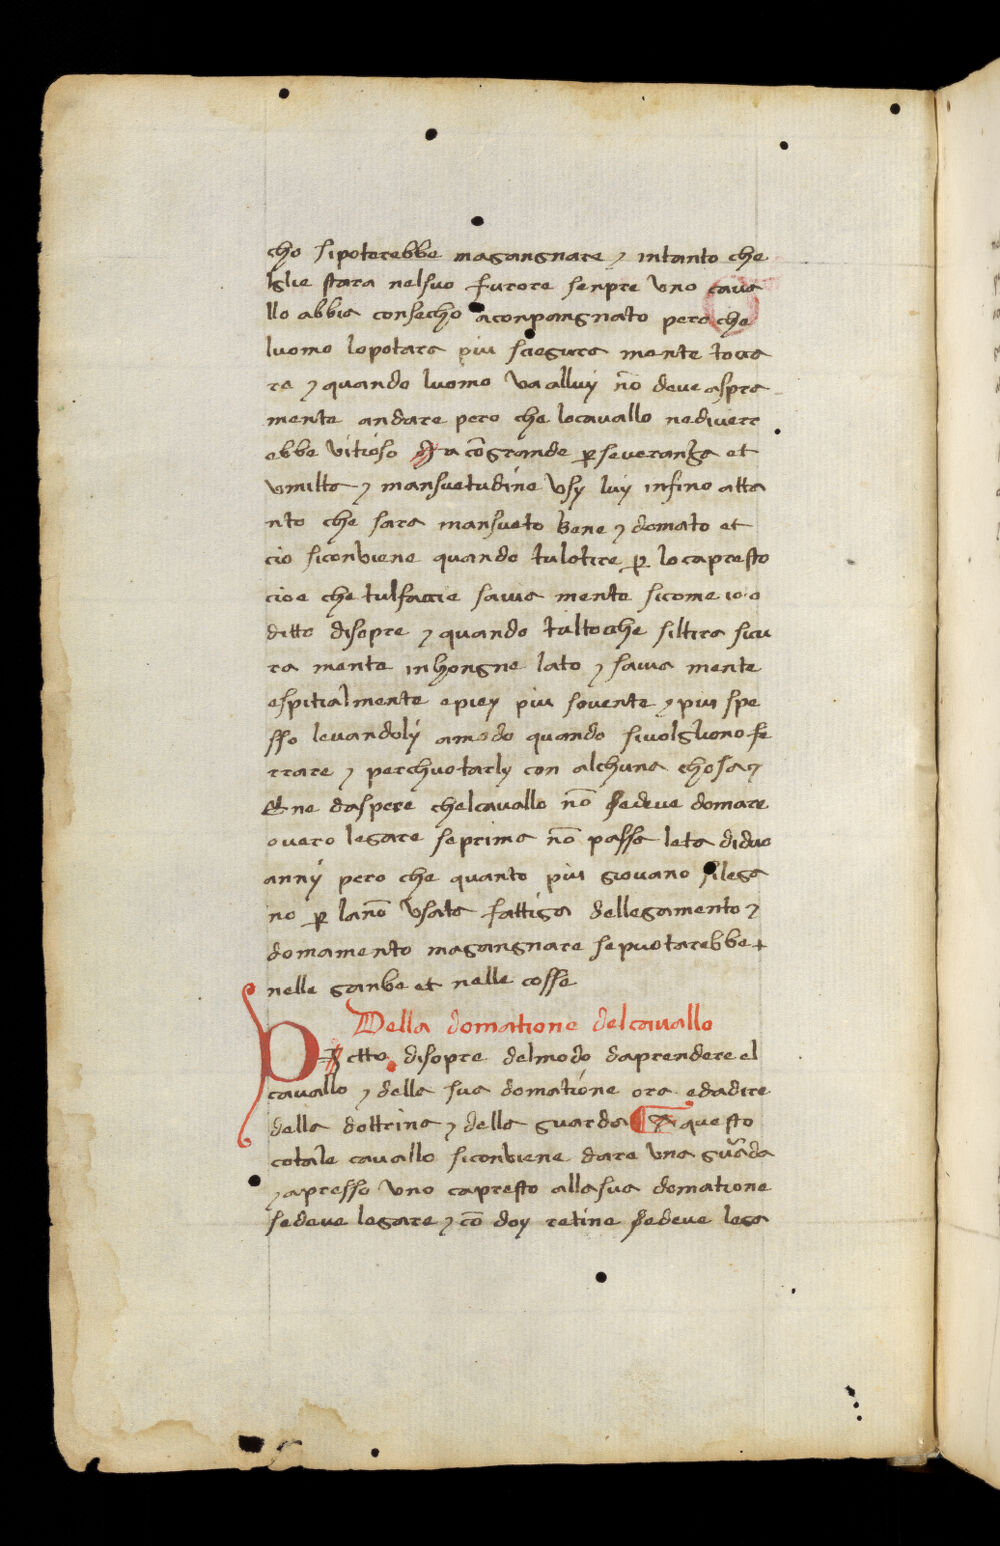 cho sipoterebbe magangnare ⁊ intanto che
lglie stara nelsuo furore senpre uno caua
llo abbia consecho aconpangnato pero che
luomo lopotara piu siegura mente tocca
re ⁊ quando luomo va alluy nō deve aspra
mente andare pero che locavallo nediverr
ebbe vitioso Ma cō grande ꝑseveranza et
vmilta ⁊ mansuetudine vsy luy infino atta
nto che sara mansueto bene ⁊ domato et
cio siconviene quando tulotire ꝑ lo capresto
cioe che tulfaccie savia mente sicome io o
ditto disopre ⁊ quando tultocche siltira sicu
ra mente inhongne lato ⁊ savia mente
espitialmente epiey piu sovente ⁊ piu spe
sso levandoly amodo quando sivolgliono fe
rrare ⁊ perchuotarly con alchuna chosa ⁊
Et ne daspere chelcavallo nō sedeve domare
overo legare seprima nō passa leta diduo
anny pero che quanto piu giovano silega
no ꝑ lanō vsata fattiga dellegamento ⁊
domamento magangnare sepuotarebbe +
nelle ganbe et nelle cosse
Della domatione delcavallo
Dectto disopre delmodo daprendere el
cavallo ⁊ della sua domatione ora edadire
della dottrina ⁊ della guarda A questo
cotale cavallo siconviene dare vna guarda
⁊ apresso vno capresto allasua domatione
sedeve legare ⁊ cō doy retine sedeve lega